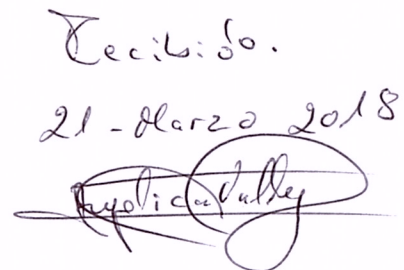 Recibido.
21 - Marzo 2018
Angelica Valle